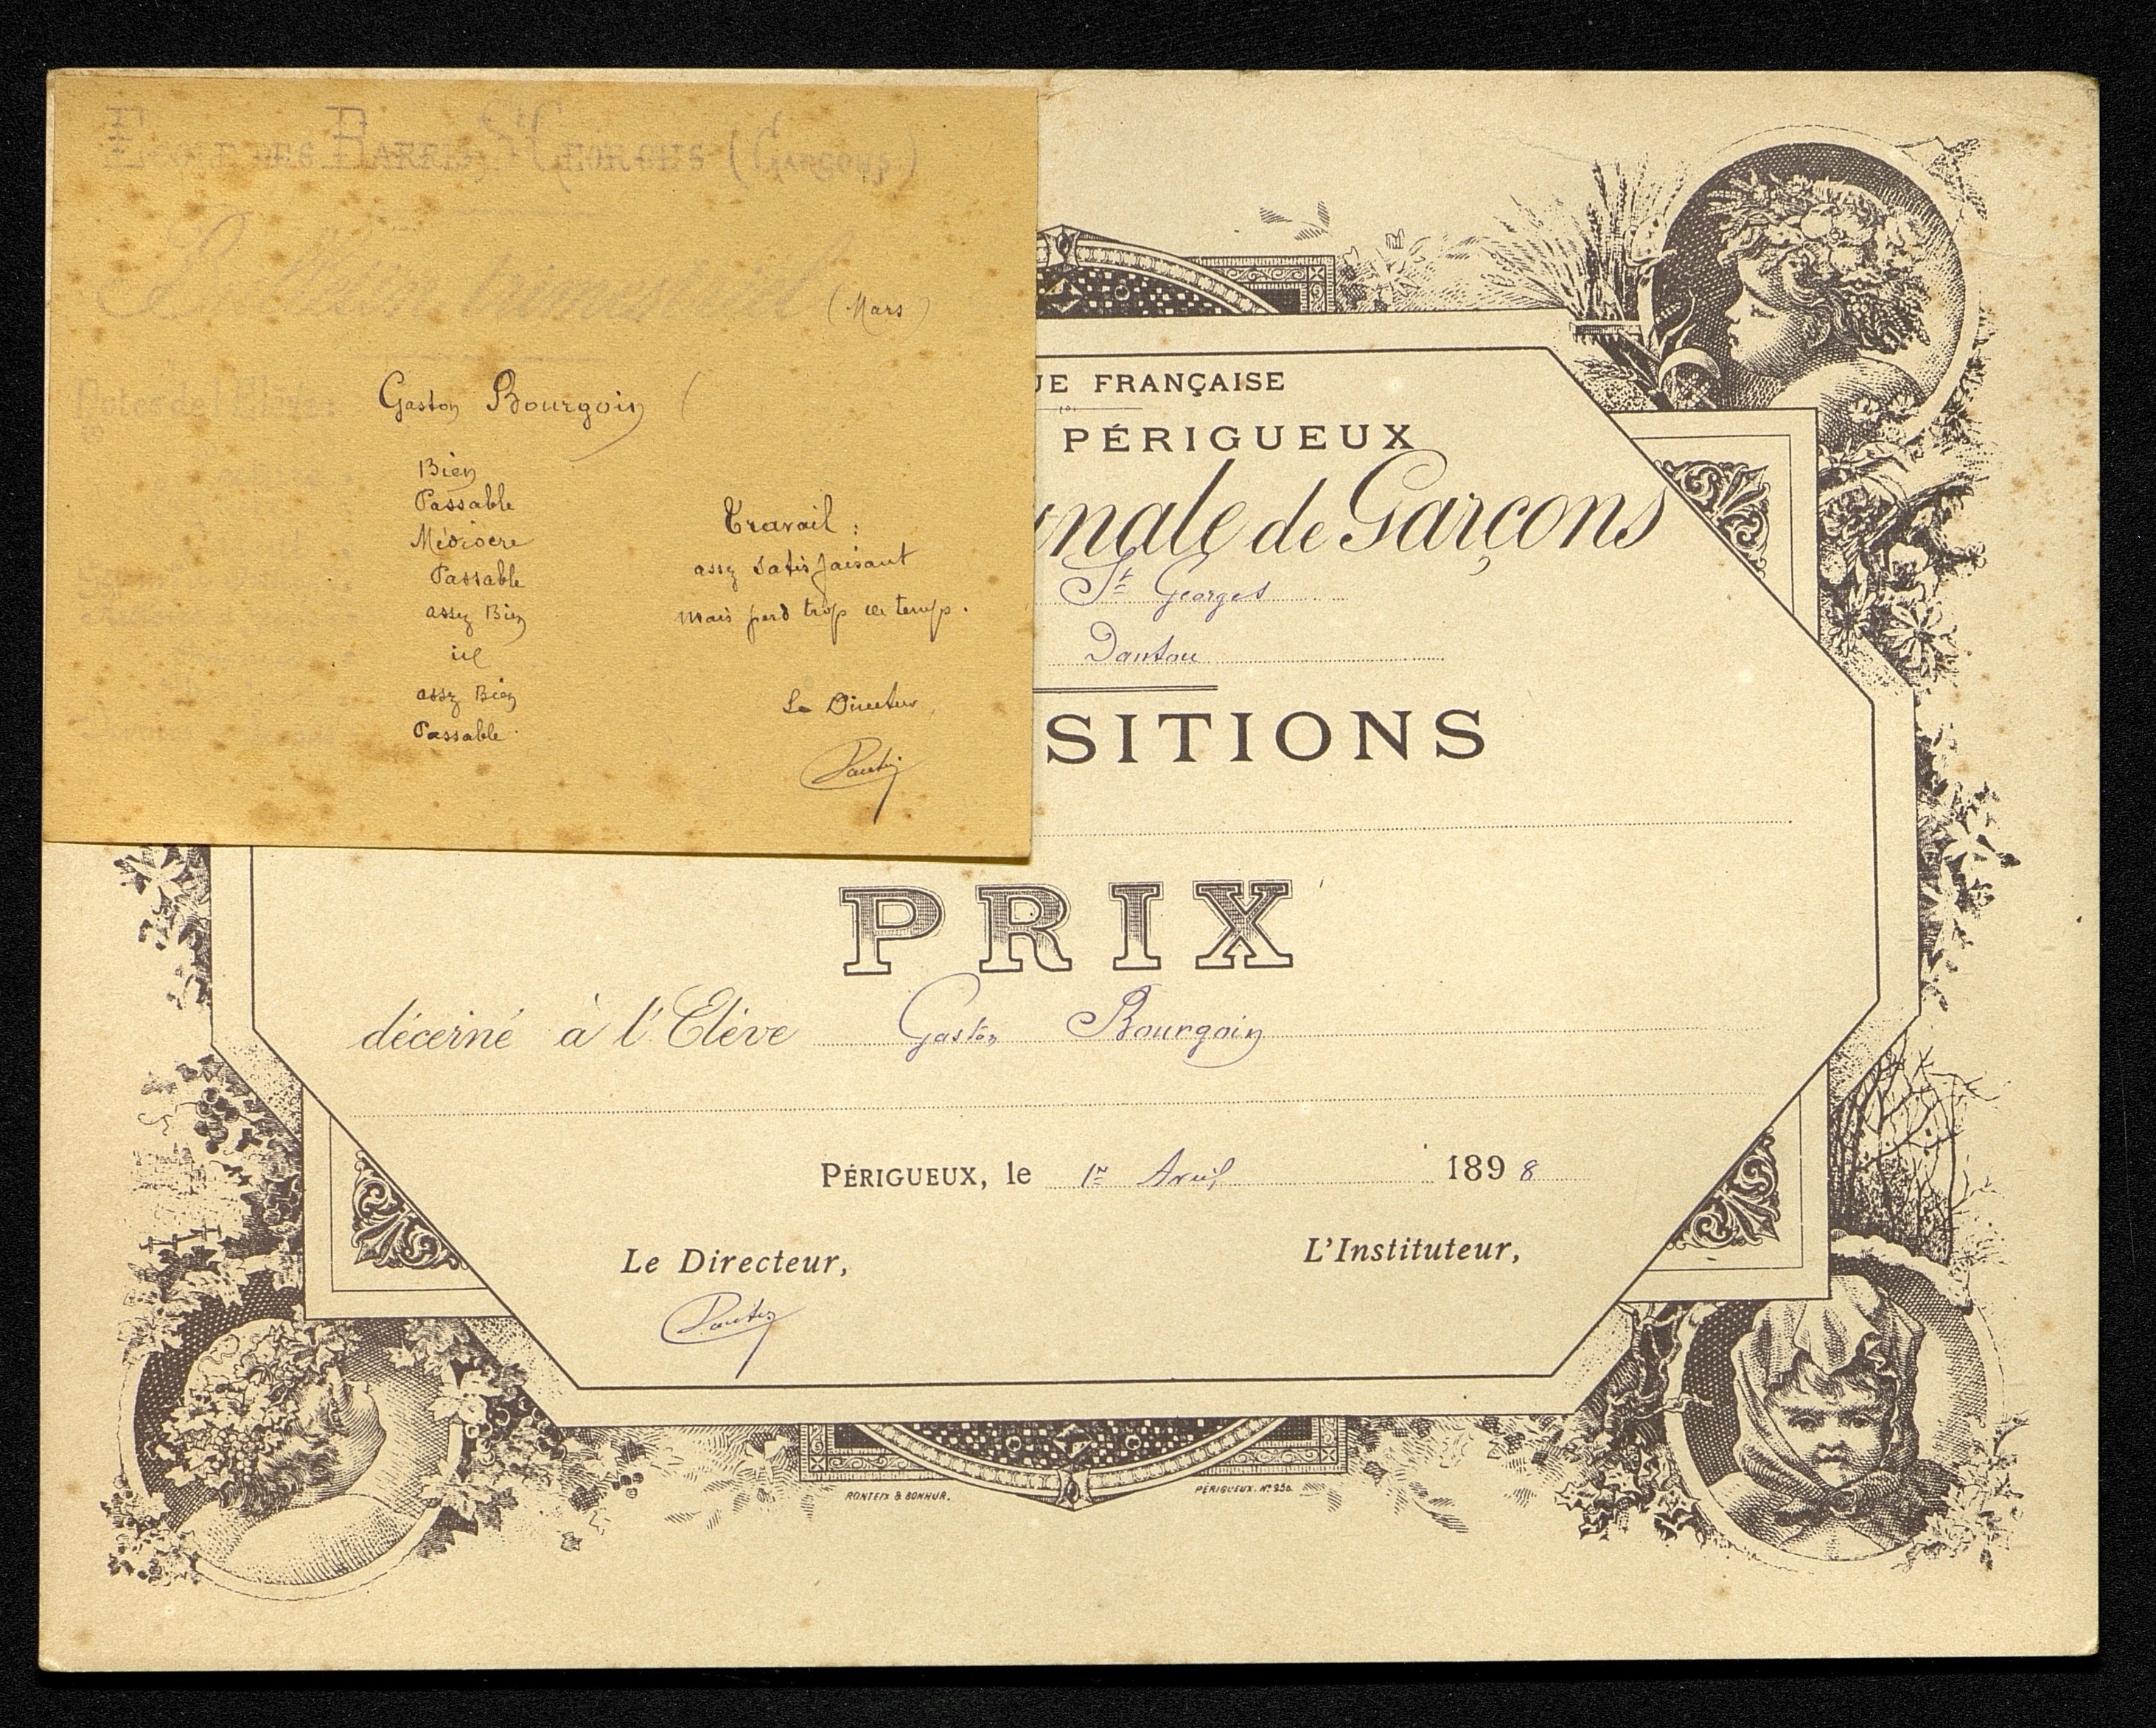 École des Barris St Georges (Garçons)
Bulletin trimestriel (Mars)
Notes de l'Élève: Gaston Bourgoin (
Bien
Passable
Médiocre
Passable
assez Bien
id
assez Bien
Passable
Travail :
assez satisfaisant
mais perd trop de temps.
Le Directeur,
UE FRANÇAISE
PÉRIGUEUX
unale de Garçons
St Georges
SITIONS
PRIX
décerné à l'Elève Gaston Bourgoin
PÉRIGUEUX, le 1er Avril 1898
Le Directeur,
L'Instituteur,
RONTEIX & BONHUR.
PÉRIGUEUX. Nº 950